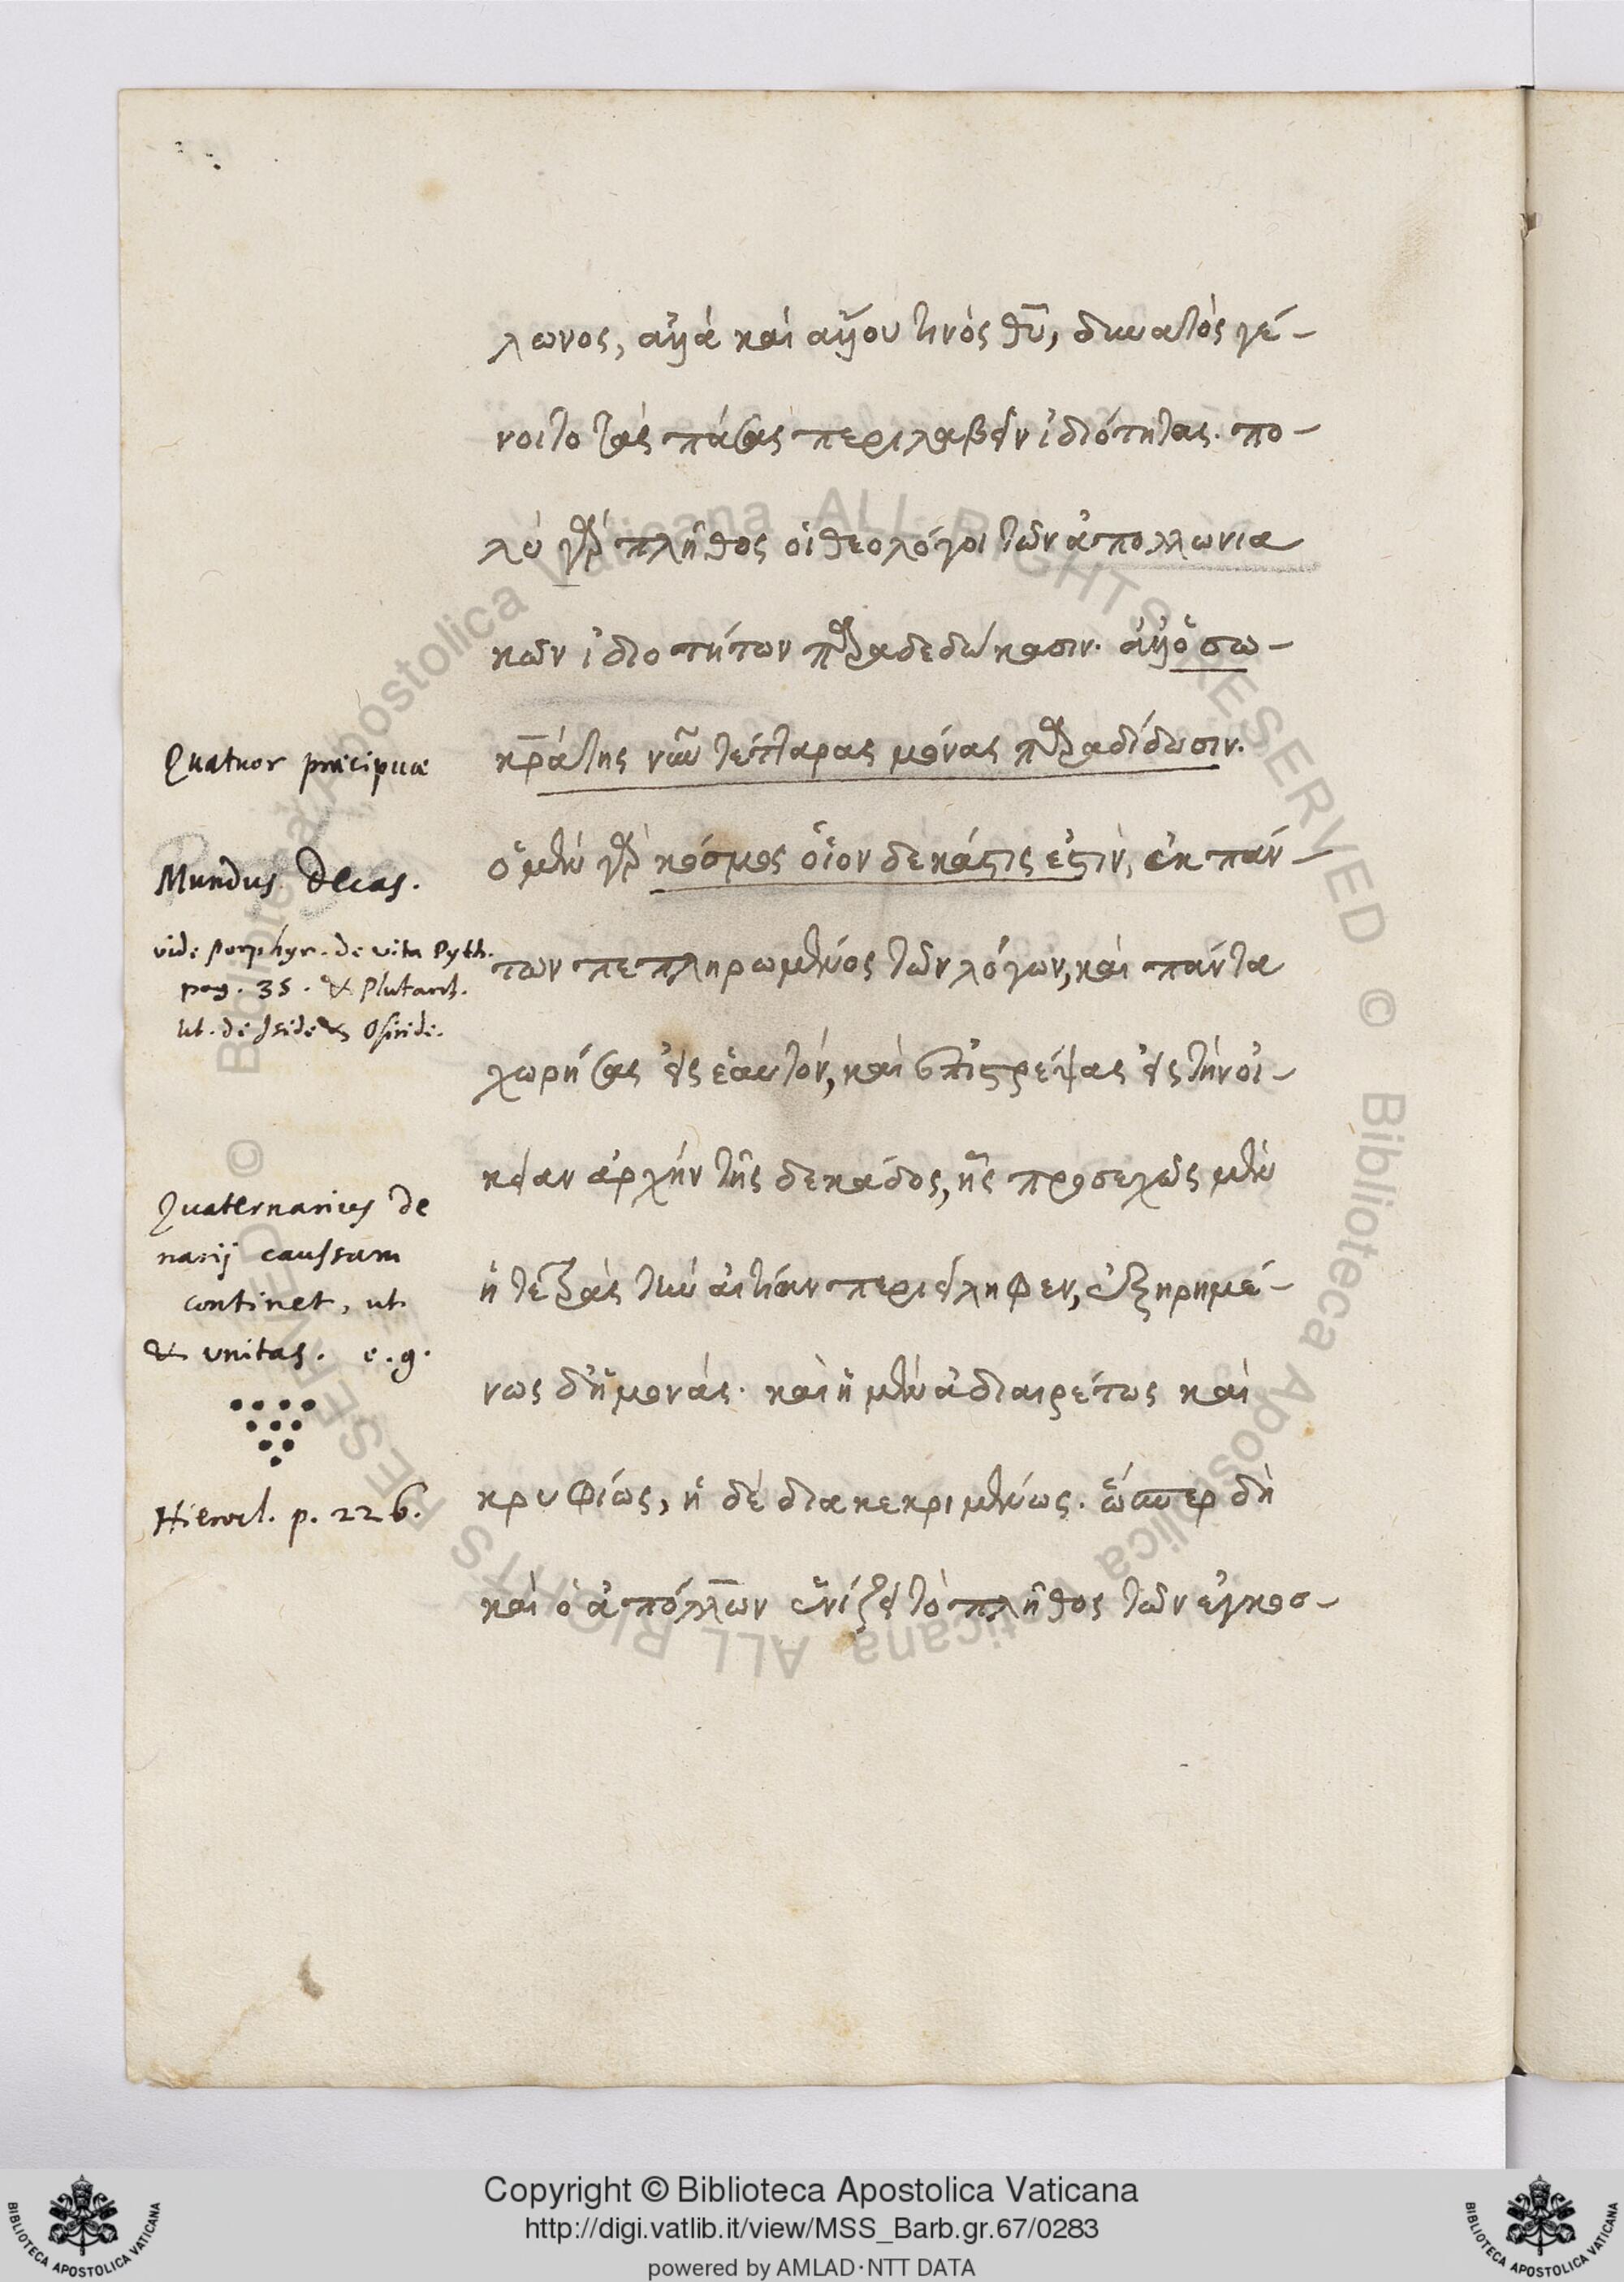 λωνος, ἀλλὰ καὶ ἄλλου τινὸς θυ, δυνατὸς γέ-
νοιτο τὰς πάσας περιλαβεῖν ἰδιότητας. πο-
λὺ γὰρ πλῆθος οἱ θεολόγοι τῶν ἀπολλωνια
κῶν ἰδιοτήτων παραδεδώκασιν. ἀλλ' ὁ σω-
κράτης νῦν τέτταρας μόνας παραδίδωσιν.
ὁ μὲν γὰρ κόσμος οἷον δεκάς τις ἐστὶν, ἐκ πάν-
των πεπληρωμένος τῶν λόγων, καὶ πάντα
χωρήσας εἰς ἑαυτόν, καὶ ἐπιστρέψας εἰς τὴν οἰ-
κείαν ἀρχὴν τῆς δεκάδος, ἧς προσεχῶς μὲν
ἡ τετρὰς τὴν αἰτίαν περιείληφεν, ἐξηρημέ-
νως δ' ἡ μονάς. καὶ ἡ μὲν ἀδιαιρέτως καὶ
κρυφίως, ἡ δὲ διακεκριμένως. ὥσπερ δὴ
καὶ ὁ ἀπόλλων ἑνίζει τὸ πλῆθος τῶν ἐγκοσ-
Quatuor præcipuæ
Mundus Decas.
vide Porphyr. de vita Pyth.
pag. 35. & Plutarch.
lib. de Iside & Osiride.
Quaternarius de
narij caussam
continet, ut
& unitas. e.g.
Hierocl. p. 226.
Copyright © Biblioteca Apostolica Vaticana
http://digi.vatlib.it/view/MSS_Barb.gr.67/0283
powered by AMLAD·NTT DATA
BIBLIOTECA APOSTOLICA VATICANA
BIBLIOTECA APOSTOLICA VATICANA
© Biblioteca Apostolica Vaticana ALL RIGHTS RESERVED
© Biblioteca Apostolica Vaticana ALL RIGHTS RESERVED